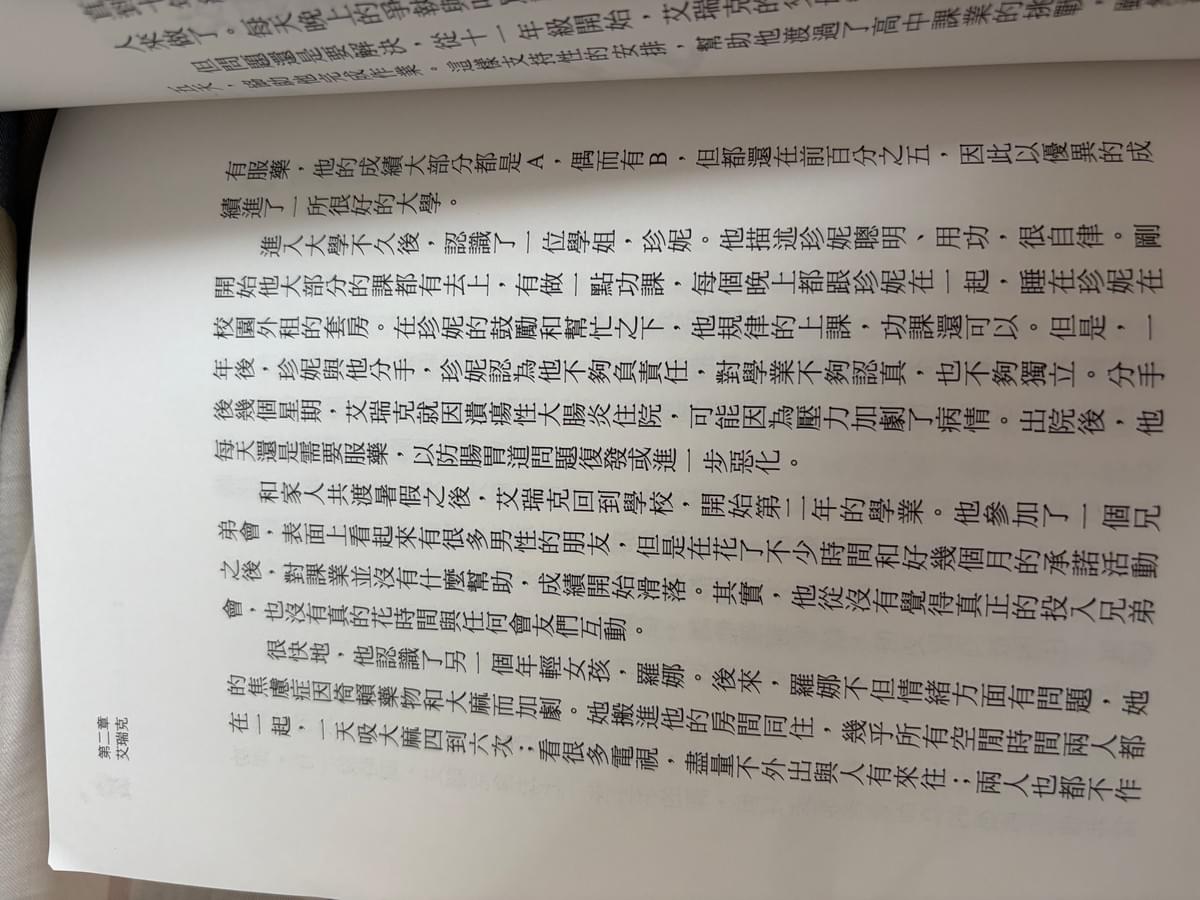 人來做了。每天晚上的爭執
但問題還是要解決，從十一年級開始，艾瑞克的
天，幫助他完成作業。這樣支持性的安排，幫助他渡過了高中課業的挑戰，
有服藥，他的成績大部分都是A，偶而有B，但都還在前百分之五，因此以優異的成
績進了一所很好的大學。
進入大學不久後，認識了一位學姐，珍妮。他描述珍妮聰明、用功，很自律。剛
開始他大部分的課都有去上，有做一點功課，每個晚上都跟珍妮在一起，睡在珍妮在
校園外租的套房。在珍妮的鼓勵和幫忙之下，他規律的上課，功課還可以。但是，一
年後，珍妮與他分手，珍妮認為他不夠負責任，對學業不夠認真，也不夠獨立。分手
後幾個星期，艾瑞克就因潰瘍性大腸炎住院，可能因為壓力加劇了病情。出院後，他
每天還是需要服藥，以防腸胃道問題復發或進一步惡化。
和家人共渡暑假之後，艾瑞克回到學校，開始第二年的學業。他參加了一個兄
弟會，表面上看起來有很多男性的朋友，但是在花了不少時間和好幾個月的承諾活動
之後，對課業並沒有什麼幫助，成績開始滑落。其實，他從沒有覺得真正的投入兄弟
會，也沒有真的花時間與任何會友們互動。
很快地，他認識了另一個年輕女孩，羅娜。後來，羅娜不但情緒方面有問題，她
的焦慮症因倚賴藥物和大麻而加劇。她搬進他的房間同住，幾乎所有空閒時間兩人都
在一起，一天吸大麻四到六次；看很多電視，盡量不外出與人有來往；兩人也都不作
第二章
艾瑞克